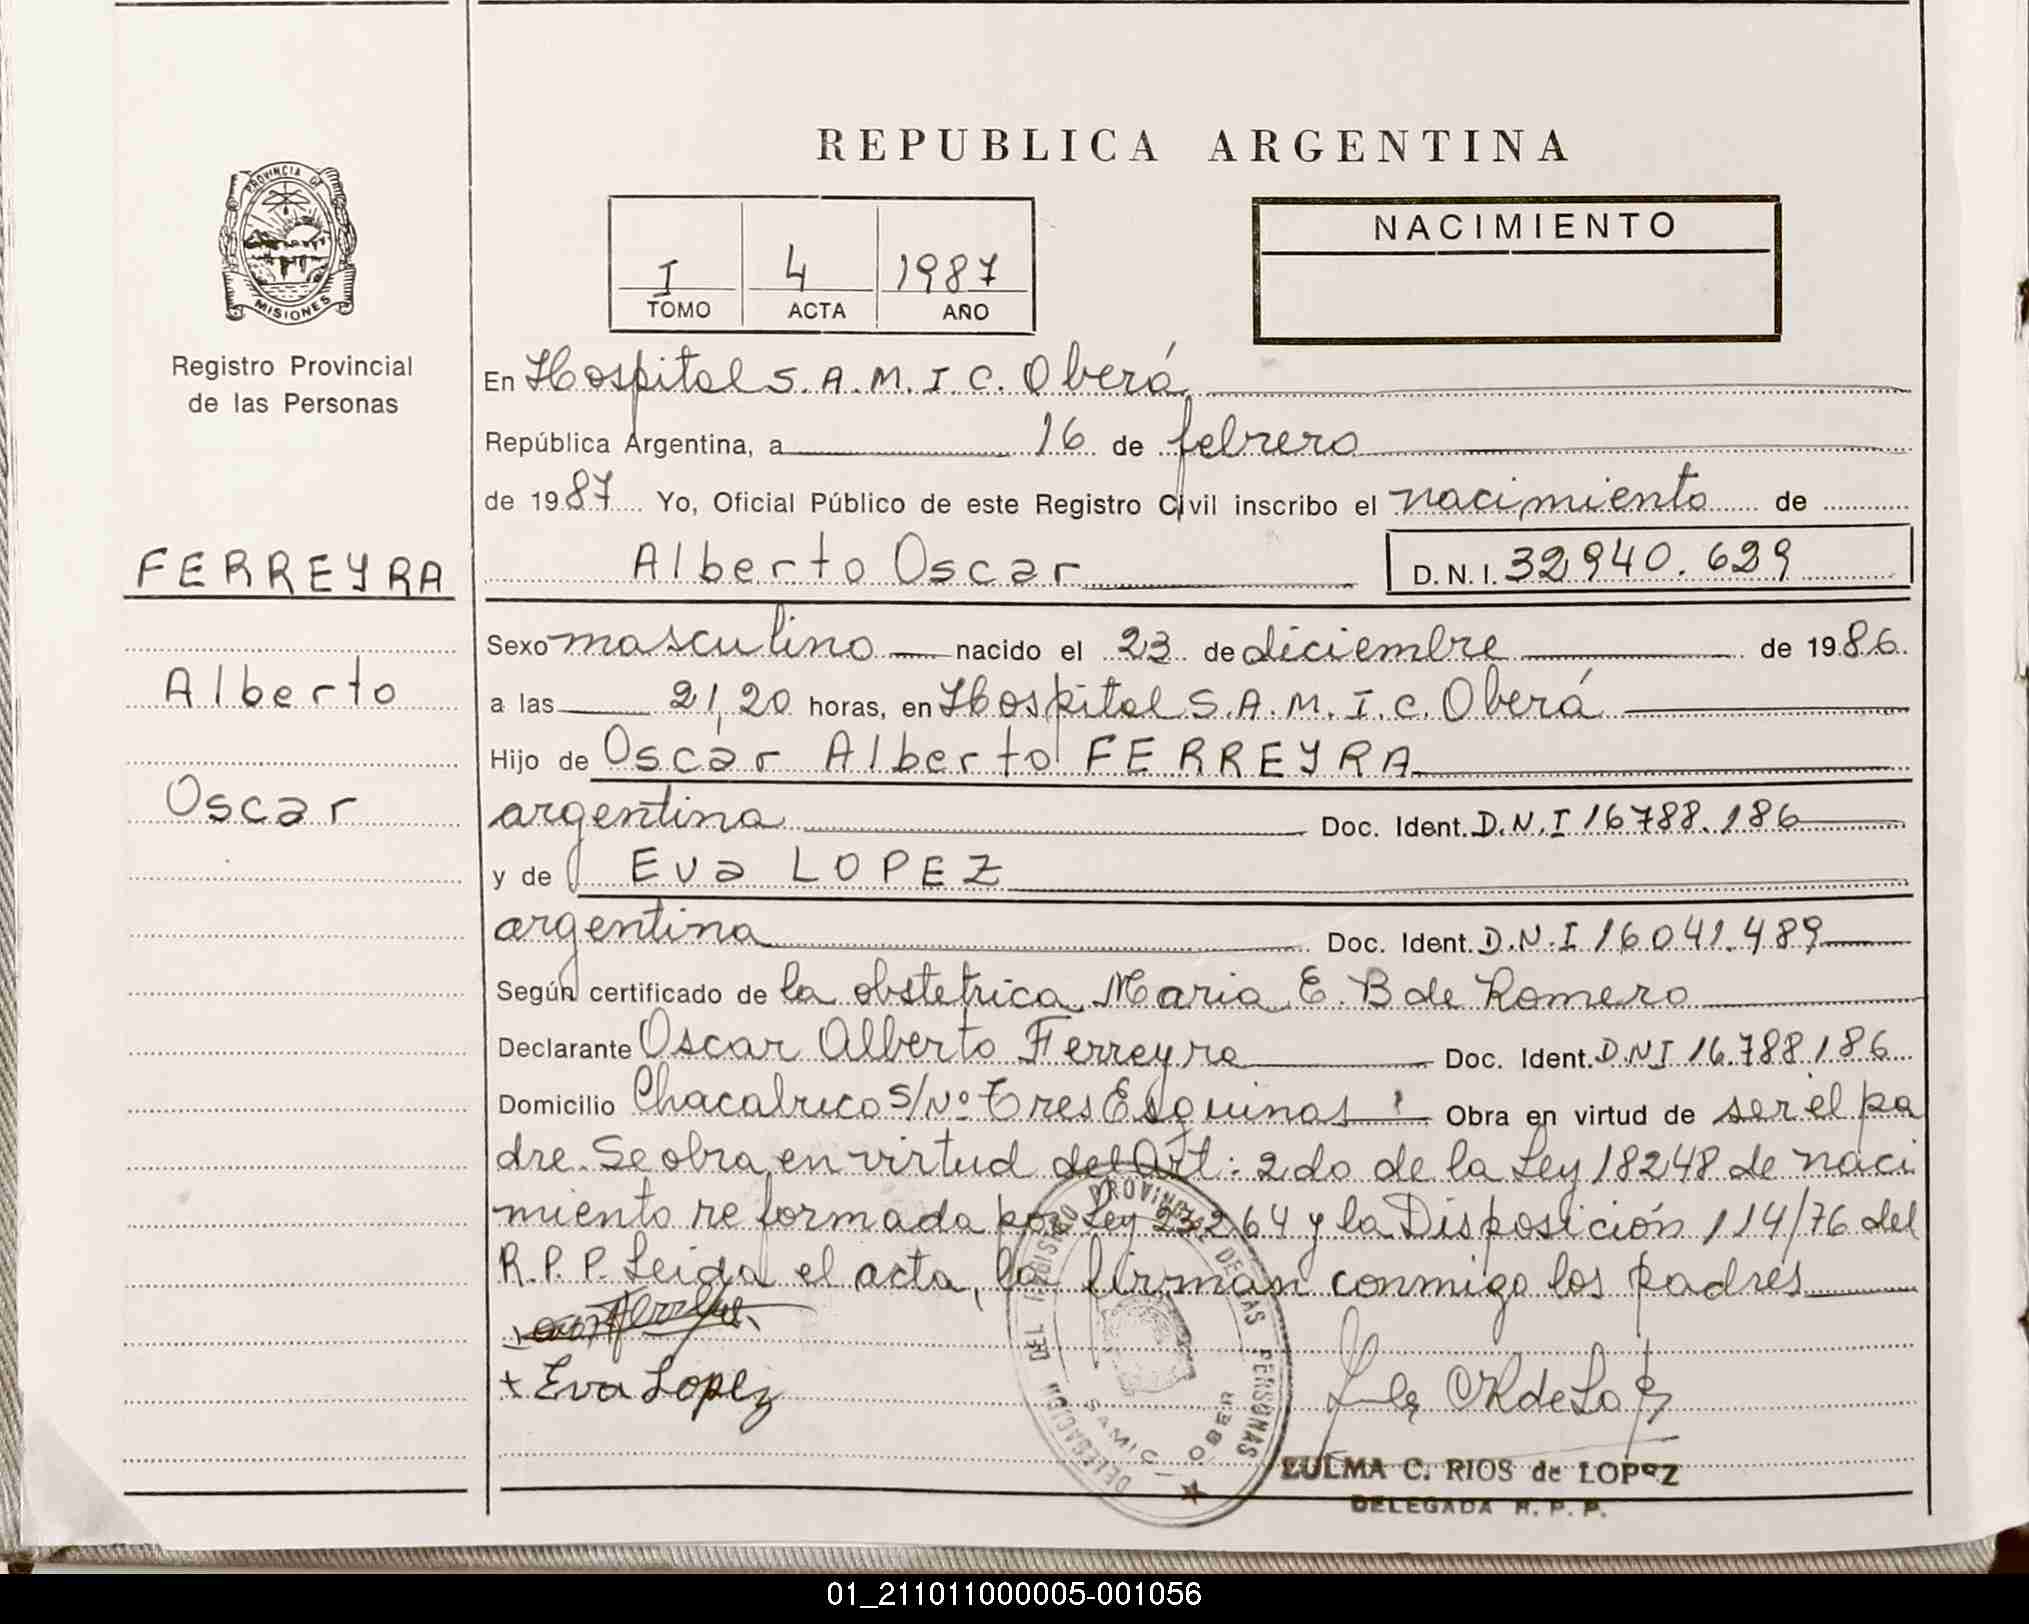 REPUBLICA ARGENTINA
PROVINCIA DE
MISIONES
Registro Provincial
de las Personas
FERREYRA
Alberto
Oscar
I 4 1987
TOMO ACTA AÑO
NACIMIENTO
En Hospital S.A.M.I.C. Oberá
República Argentina, a 16 de febrero
de 1987 Yo, Oficial Público de este Registro Civil inscribo el nacimiento de
Alberto Oscar D.N.I. 32940.629
Sexo masculino nacido el 23 de diciembre de 1986.
a las 21,20 horas, en Hospital S.A.M.I.C. Oberá
Hijo de Oscar Alberto FERREYRA
argentina Doc. Ident. D.N.I 16788.186
y de Eva LOPEZ
argentina Doc. Ident. D.N.I 16041.489
Según certificado de la obstetrica Maria E. B de Romero
Declarante Oscar Alberto Ferreyra Doc. Ident. DNI 16.788.186
Domicilio S/Nº Tres Esquinas Obra en virtud de ser el pa
dre. Se obra en virtud del Art: 2do de la Ley 18248 de naci
miento reformada por Ley 23264 y la Disposición 114/76 del
R.P.P. Leida el acta, la firman conmigo los padres
+ Eva Lopez
DELEGACION DEL REGISTRO PROVINCIAL DE LAS PERSONAS
SAMIC - OBERA
ZULMA C. RIOS de LOPEZ
DELEGADA R. P. P.
01_211011000005-001056